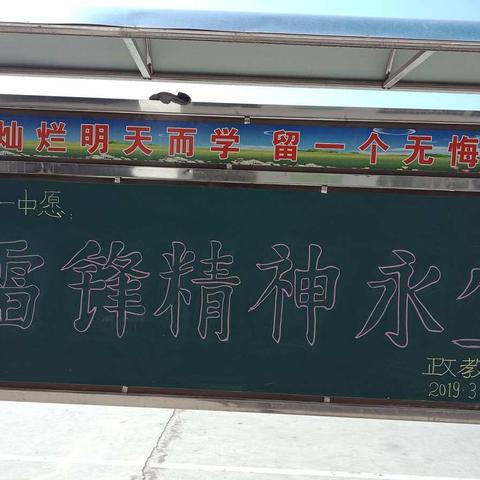 灿烂明天而学 留一个无悔
一中愿：
雷锋精神永生
政教
2019.3